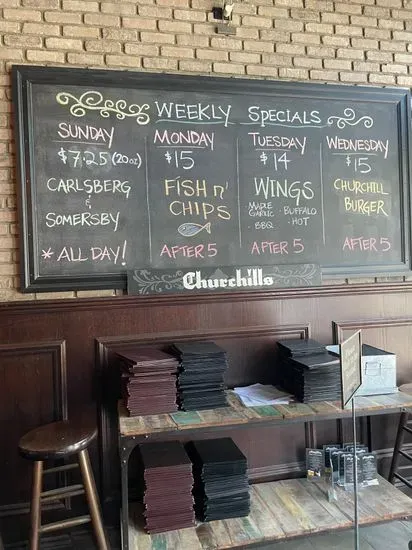 WEEKLY SPECIALS
SUNDAY
$7.25 (20oz)
CARLSBERG
&
SOMERSBY
* ALL DAY!
MONDAY
$15
FISH N'
CHIPS
AFTER 5
TUESDAY
$14
WINGS
MAPLE GARLIC
• BUFFALO
• BBQ
• HOT
AFTER 5
WEDNESDAY
$15
CHURCHILL
BURGER
AFTER 5
Churchills